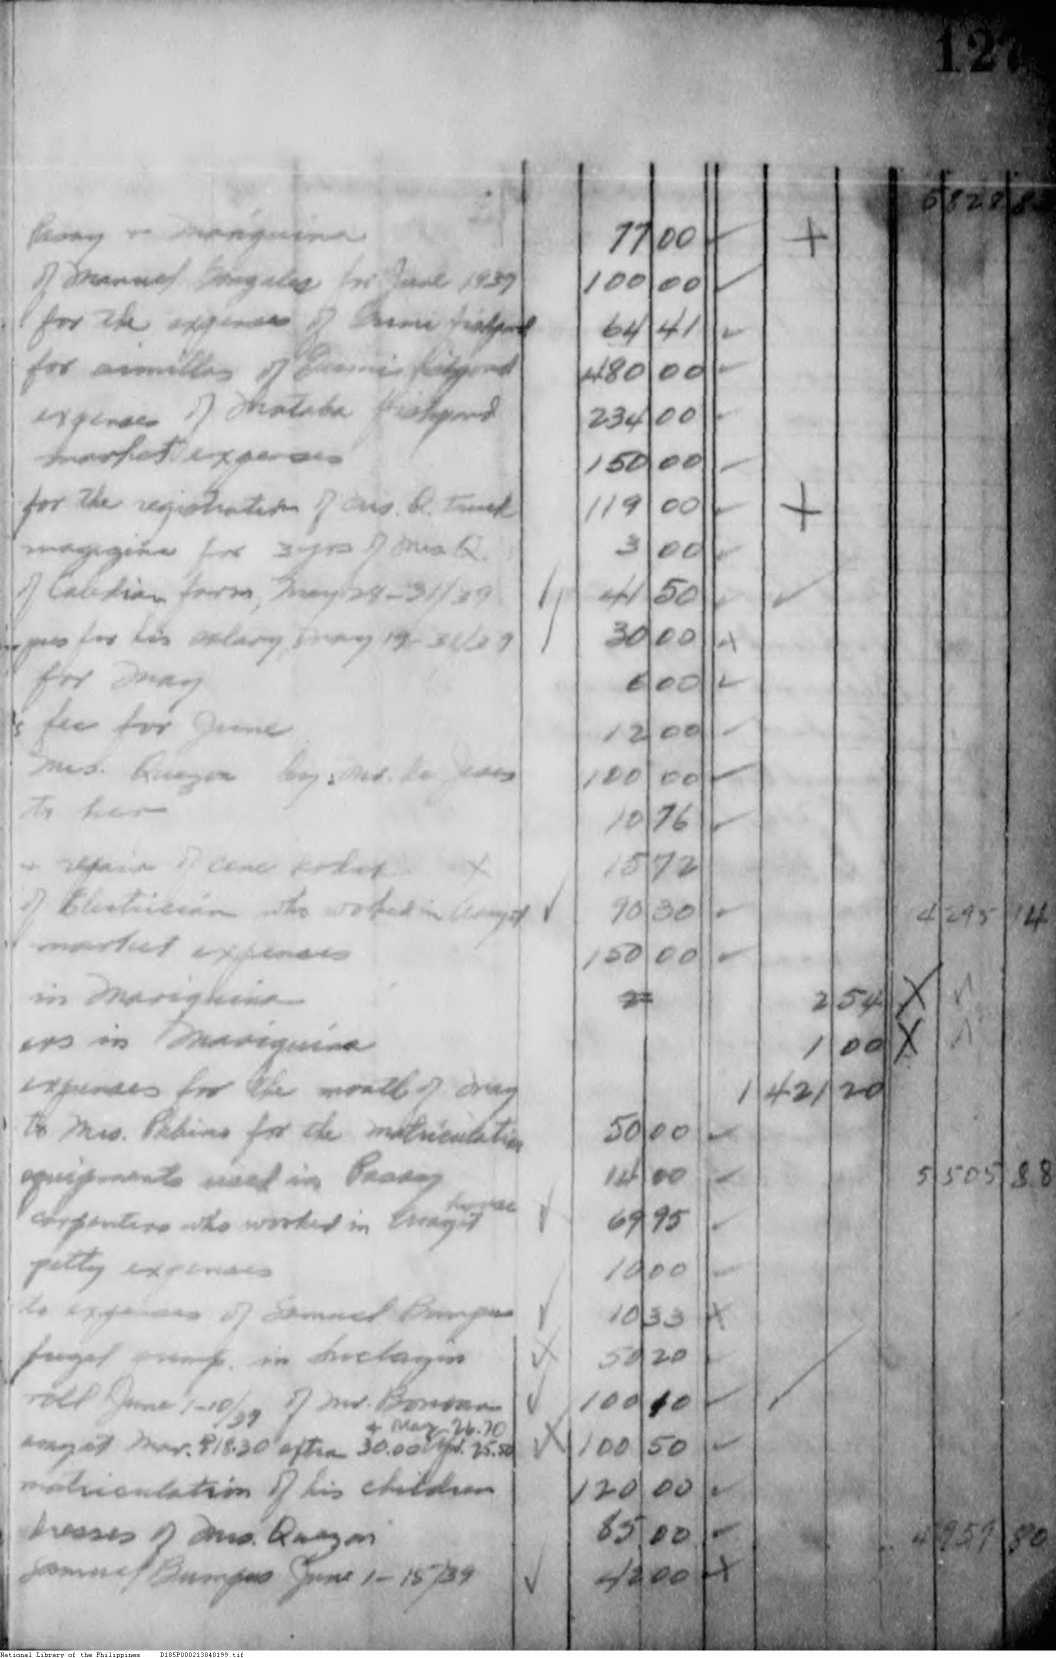 127
6828 8
Pasay & Mariquina 77 00
of Manuel Gonzales for June 1939 100 00
for the expenses of fishpond 64 41
for similles of fishpond 480 00
expenses of Mataba Fishpond 234 00
market expenses 150 00
for the registration of Mrs. Q. truck 119 00
magazine for 3 yrs of Mrs Q. 3 00
of farm, May 28-31/39 41 50
for his salary, May 19-31/39 30 00
for May 6 00
fee for June 12 00
Mrs. Quezon by: Mr. de Jesus 100 00
to her 10 76
& repair of cine kodak 15 72
of Electrician who worked in Arayat 90 30 4 295 14
market expenses 150 00
in Mariquina 2 54
ers in Mariquina 1 00
expenses for the month of May 1 421 20
to Mrs. for the matriculation 50 00
equipments used in Pasay 14 00 5 505 88
house
carpenters who worked in Arayat 69 95
petty expenses 10 00
to expenses of Samuel Bumgus 10 33
in 50 20
roll June 1-10/39 of Mr. 100 10
& May 26.70
Arayat Mar. ₱18.30 30.00 Apl. 25.50 100 50
matriculation of his children 120 00
dresses of Mrs. Quezon 85 00 4957 80
Samuel Bumgus June 1-15/39 42 00
National Library of the Philippines D185P000213040199.tif